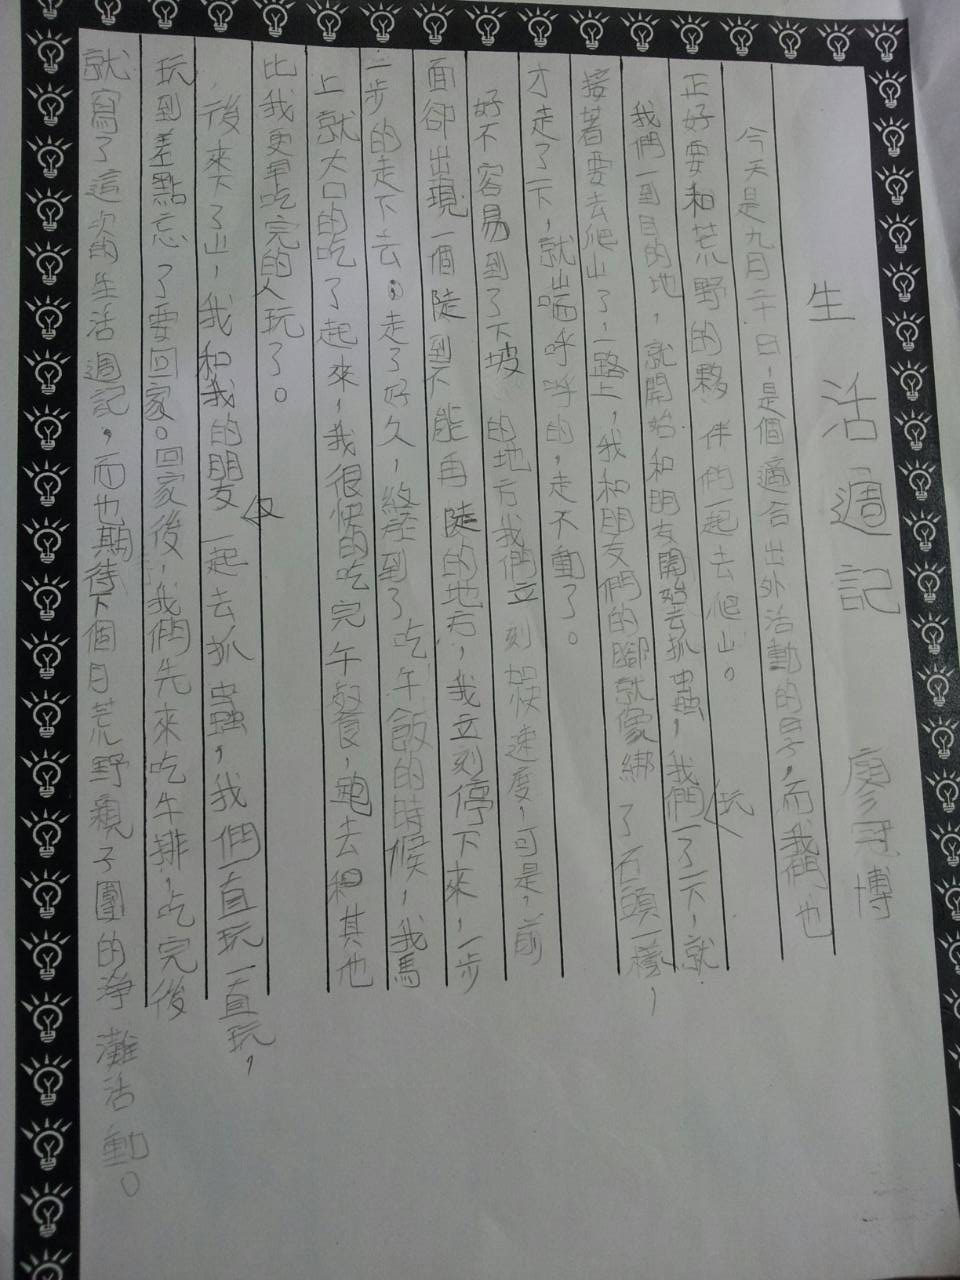 生活週記 廖冠博
今天是九月二十日，是個適合出外活動的日子，而我們也
正好要和荒野的夥伴們一起去爬山。
我們一到目的地，就開始和朋友開始去抓蟲，我們玩了一下，就
接著要去爬山了，一路上，我和朋友們的腳就像綁了石頭一樣，
才走了一下，就喘呼呼的，走不動了。
好不容易到了下坡的地方我們立刻加快速度，可是，前
面卻出現一個陡到不能再陡的地方，我立刻停下來，一步
一步的走下去，走了好久，終於到了吃午飯的時候，我馬
上就大口的吃了起來，我很快的吃完午餐，跑去和其他
比我更早吃完的人玩了。
後來下了山，我和我的朋友一起去抓蟲，我們一直玩一直玩，
玩到差點忘了要回家。回家後，我們先來吃牛排，吃完後
就寫了這次的生活週記，而也期待下個月荒野親子團的淨灘活動。